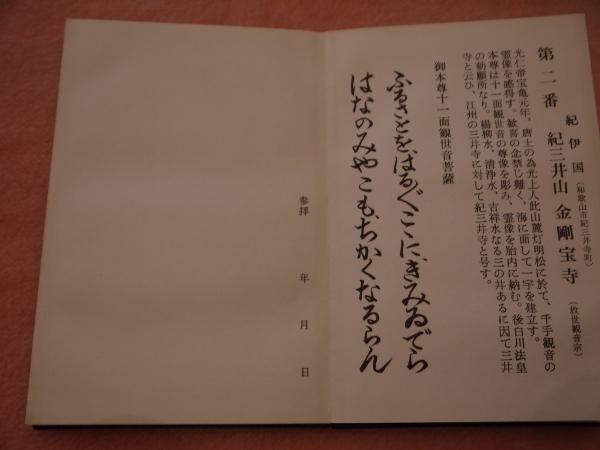 第二番 紀伊国（和歌山市紀三井寺町）
紀三井山 金剛宝寺（救世観音宗）
光仁帝宝亀元年、唐土の為光上人此山麓灯明松に於て、千手観音の
霊像を感得す。歓喜の念禁じ難く、海に面して一宇を建立す。
本尊は十一面観世音の尊像を彫み、霊像を胎内に納む。後白川法皇
の勅願所なり。楊柳水、清浄水、吉祥水なる三の井あるに因て三井
寺と云ひ、江州の三井寺に対して紀三井寺と号す。
御本尊十一面観世音菩薩
ふるさとをはるぐこゝにきみゐでら
はなのみやこもちかくなるらん
参拝 年 月 日